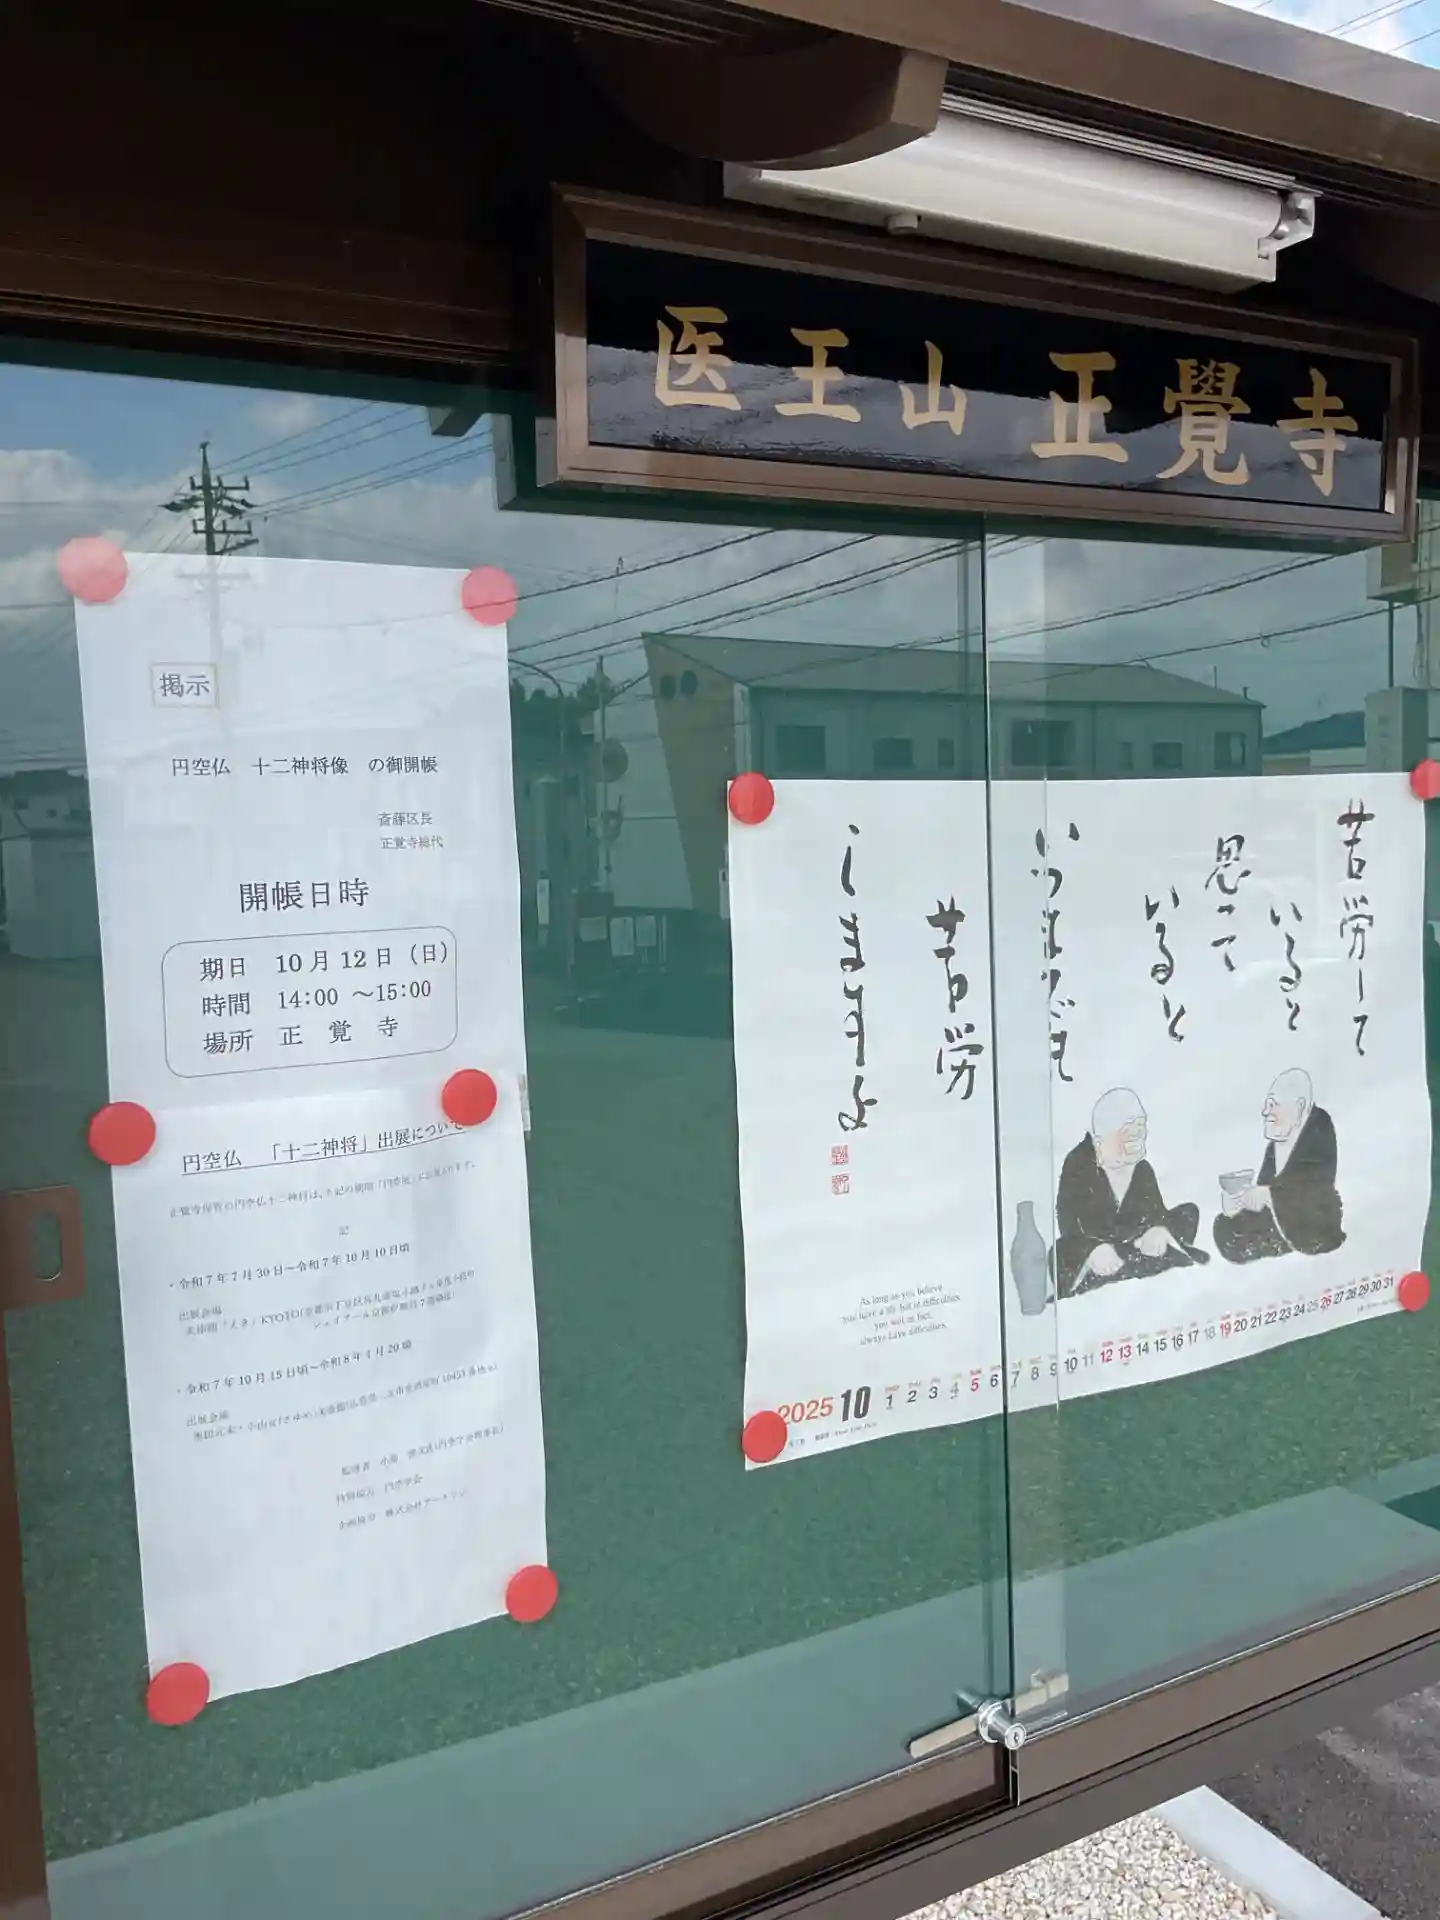 医王山 正覺寺
掲示
円空仏 十二神将像 の御開帳
斎藤区長
正覚寺総代
開帳日時
期日 10月12日(日)
時間 14:00 ~15:00
場所 正 覚 寺
円空仏 「十二神将」出展について
正覺寺保管の円空仏十二神将は、下記の期間「円空展」に出展されます。
記
・令和7年7月30日~令和7年10月10日頃
出展会場
美術館「えき」KYOTO
・令和7年10月15日頃~令和8年4月20頃
出展会場
監修者 小島
特別協力 円空学会
企画協力 株式会社アートワン
苦労して
いると
思って
いると
いつまでも
苦労
しますよ
As long as you believe
you have a life but in difficulties,
you will in fact,
always have difficulties.
2025 10 1 2 3 4 5 6 7 8 9 10 11 12 13 14 15 16 17 18 19 20 21 22 23 24 25 26 27 28 29 30 31